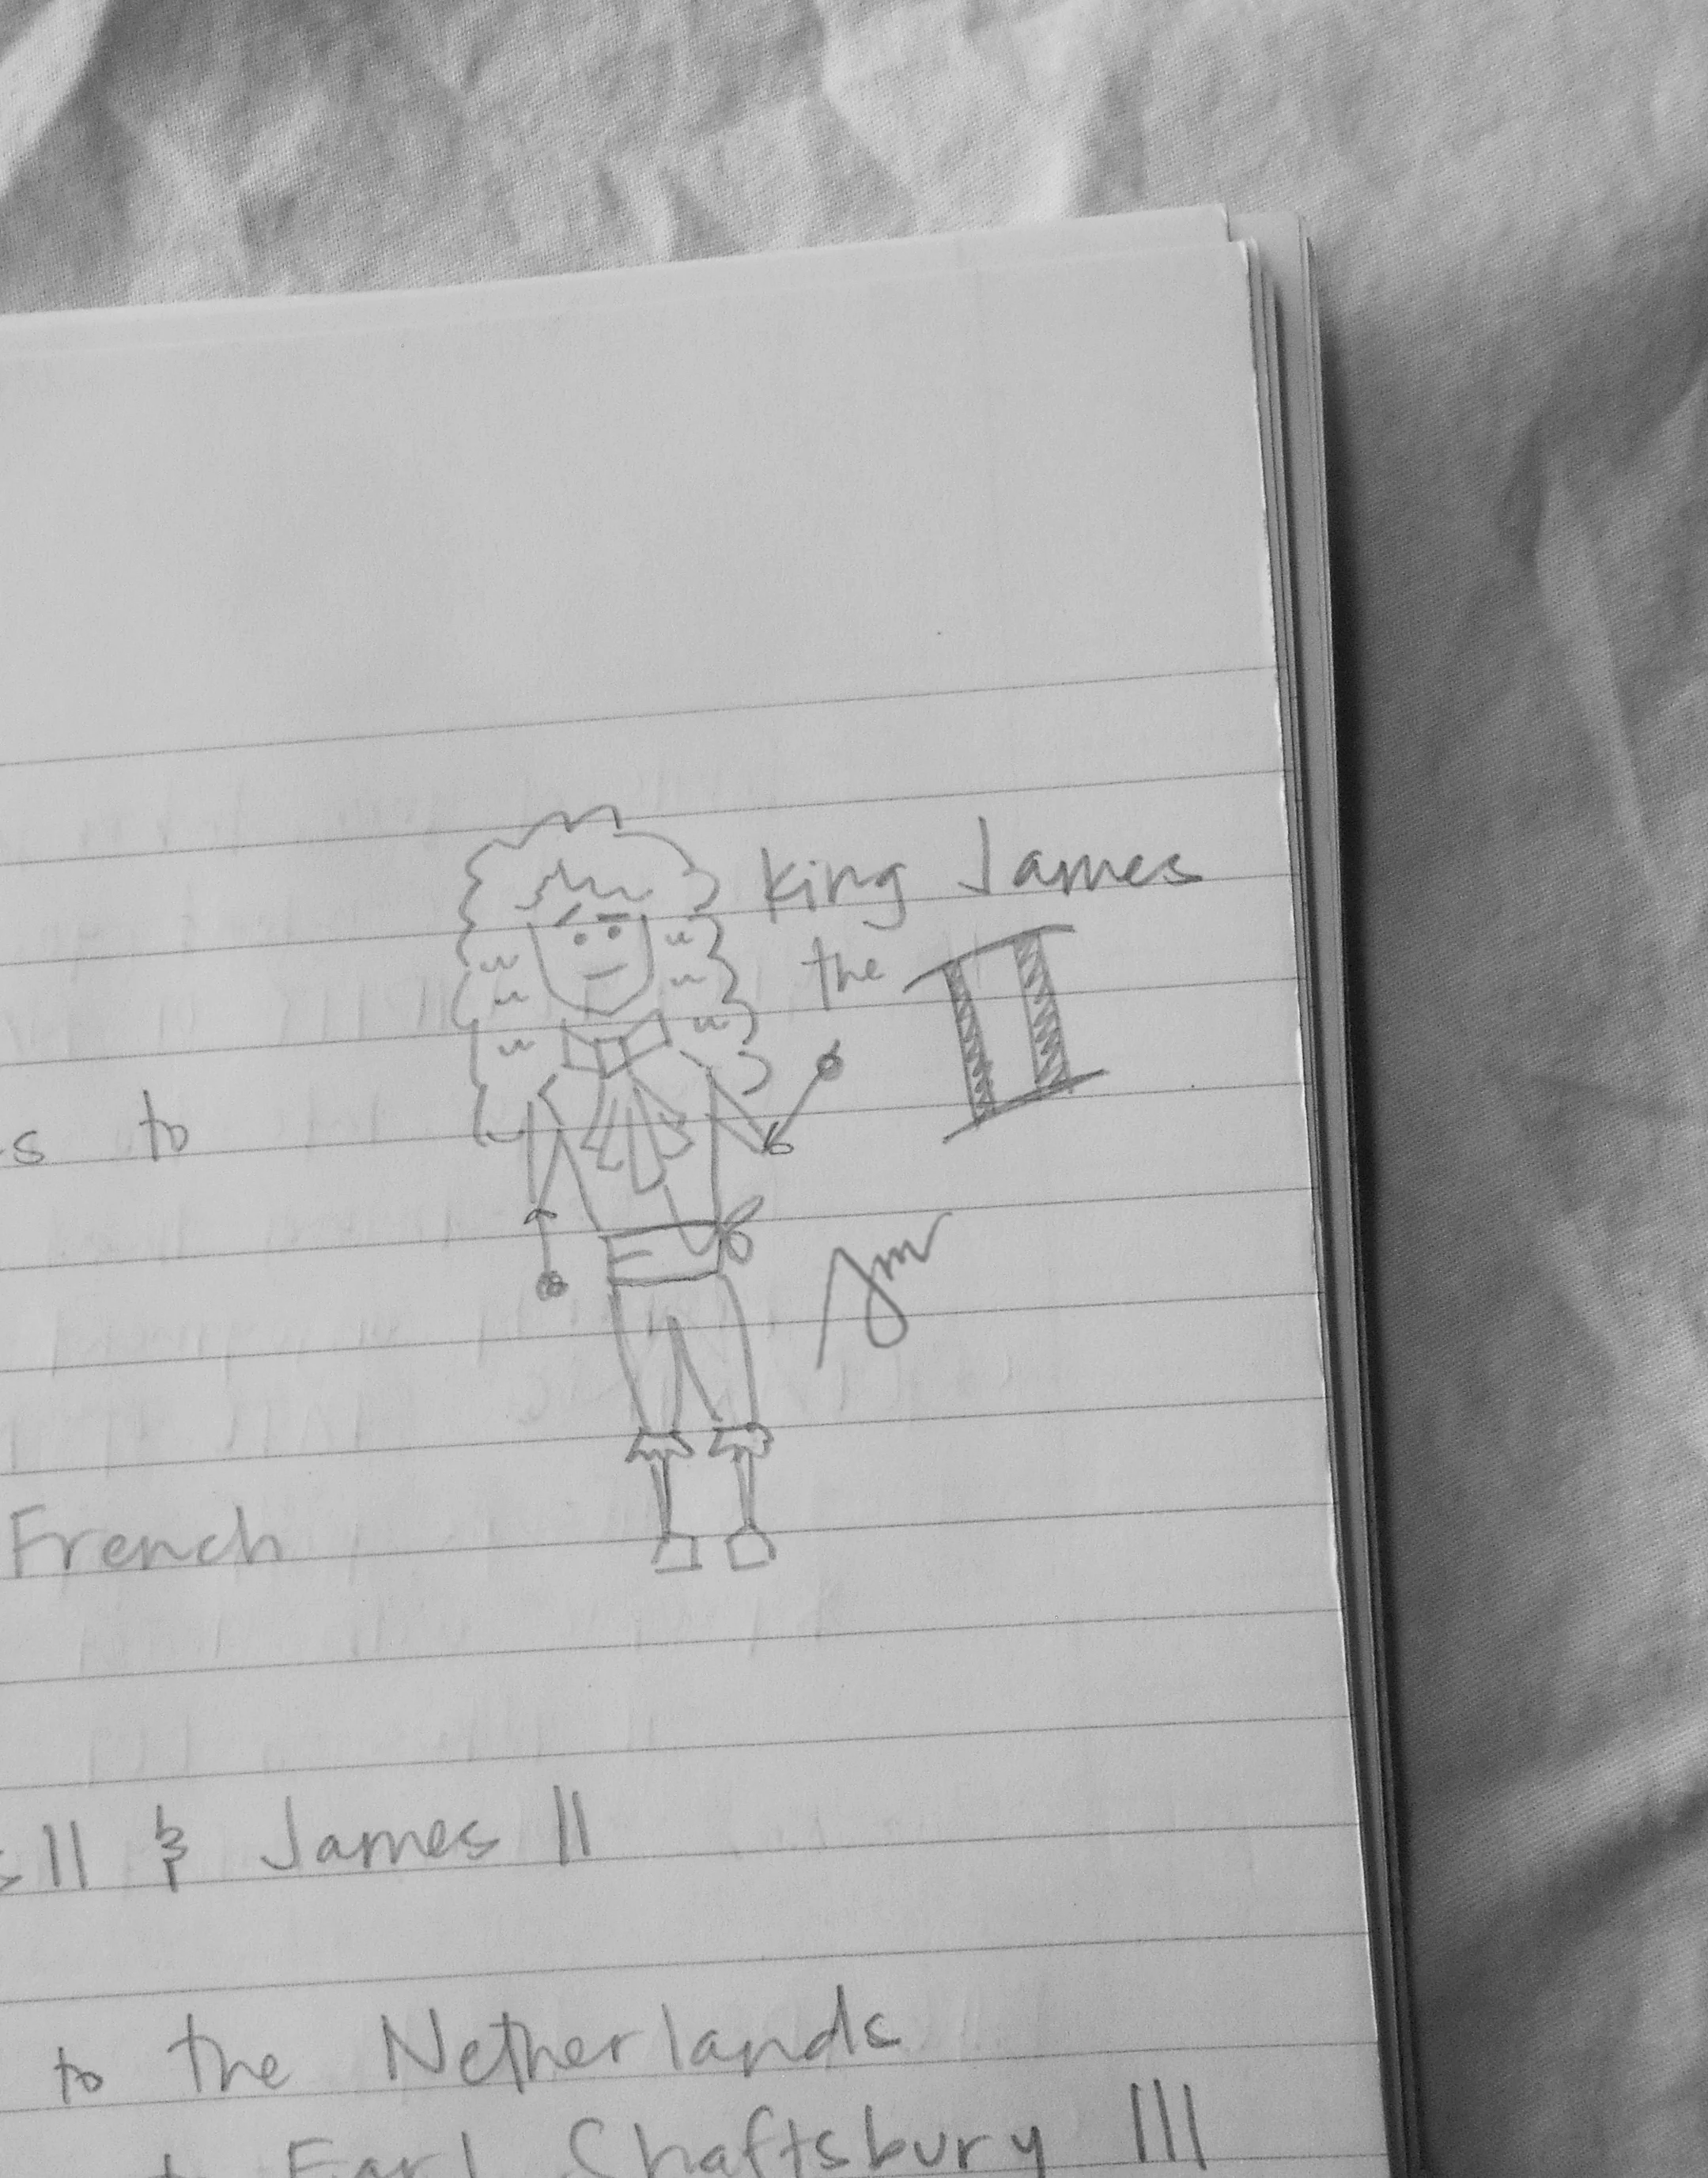 King James
the II
s to
French
s II & James II
to the Netherlands
Earl Shaftsbury III